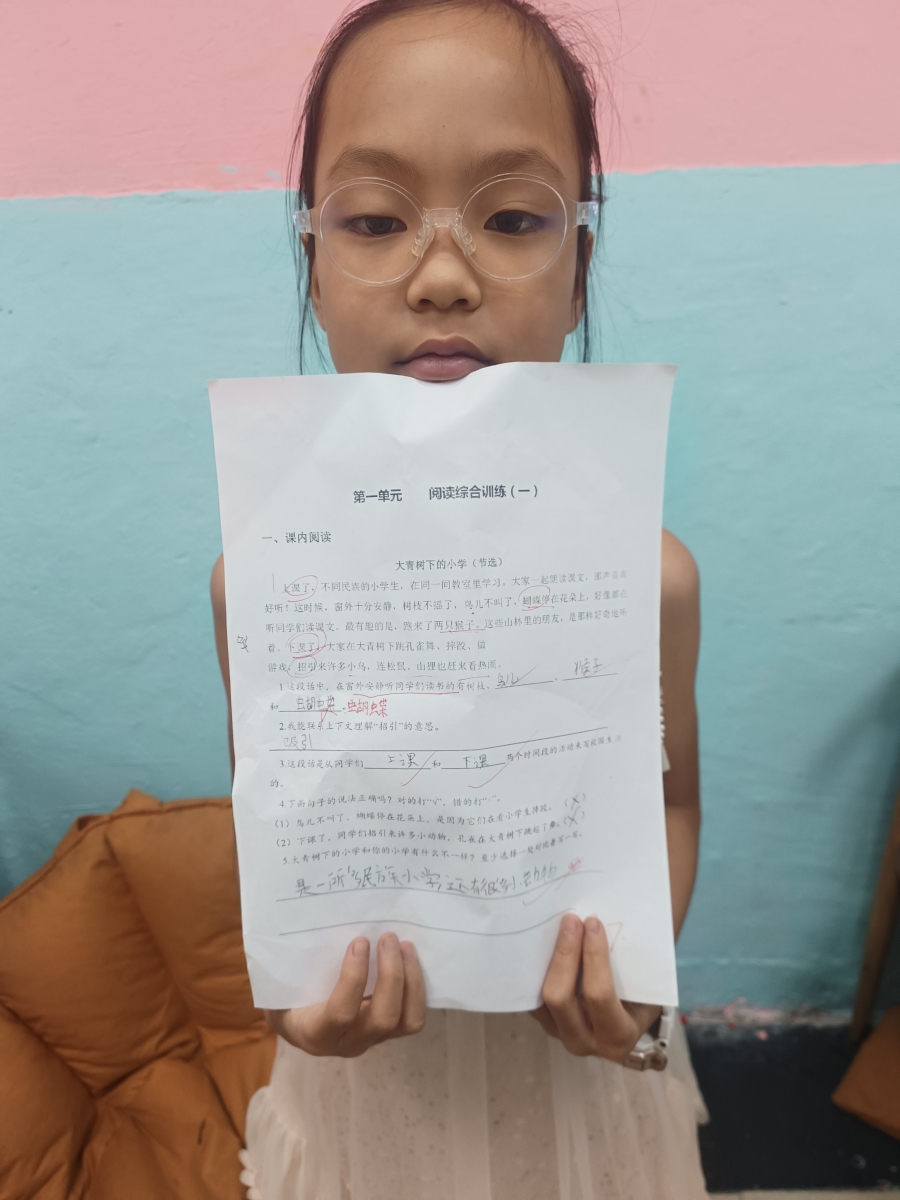 第一单元 阅读综合训练(一)
一、课内阅读
大青树下的小学(节选)
上课了,不同民族的小学生,在同一间教室里学习。大家一起朗读课文,那声音真
好听!这时候,窗外十分安静,树枝不摇了,鸟儿不叫了,蝴蝶停在花朵上,好像都在
听同学们读课文。最有趣的是,跑来了两只猴子。这些山林里的朋友,是那样好奇地听
着。下课了,大家在大青树下跳孔雀舞、摔跤、做
游戏,招引来许多小鸟,连松鼠、山狸也赶来看热闹。
1.这段话中,在窗外安静听同学们读书的有树枝、鸟儿、猴子
和蝴蝶。蝴蝶
2.我能联系上下文理解“招引”的意思。
吸引
3.这段话是从同学们上课和下课两个时间段的活动来写校园生活
的。
4.下面句子的说法正确吗?对的打“√”,错的打“×”。
(1)鸟儿不叫了,蝴蝶停在花朵上,是因为它们在看小学生摔跤。(×)
(2)下课了,同学们招引来许多小动物,孔雀在大青树下跳起了舞。(×)
5.大青树下的小学和你的小学有什么不一样?至少选择一处对比着写一写。
是一所多民族小学,还有很多小动物